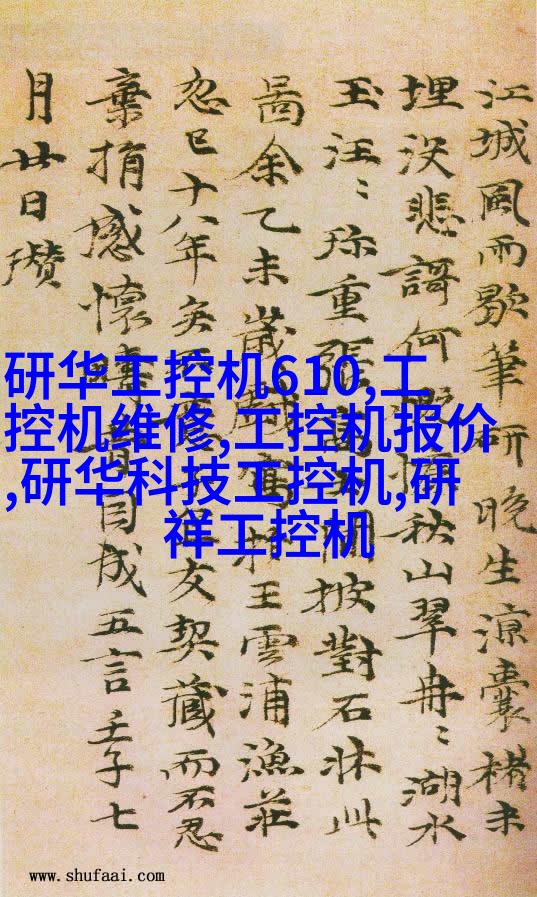 江城風雨歇筆研晚生涼囊楮未
埋沒悲謌何慷秋山翠冉〻湖水
玉汪〻珎重張閒披對石牀此
啚余乙未歲戲寫於王雲浦漁莊
忽已十八年矣友契藏而不忍
棄捐感懷疇昔因成五言壬子七
月廿日瓚
研华工控机610,工
控机维修,工控机报价
,研华科技工控机,研
祥工控机
www.shufaai.com